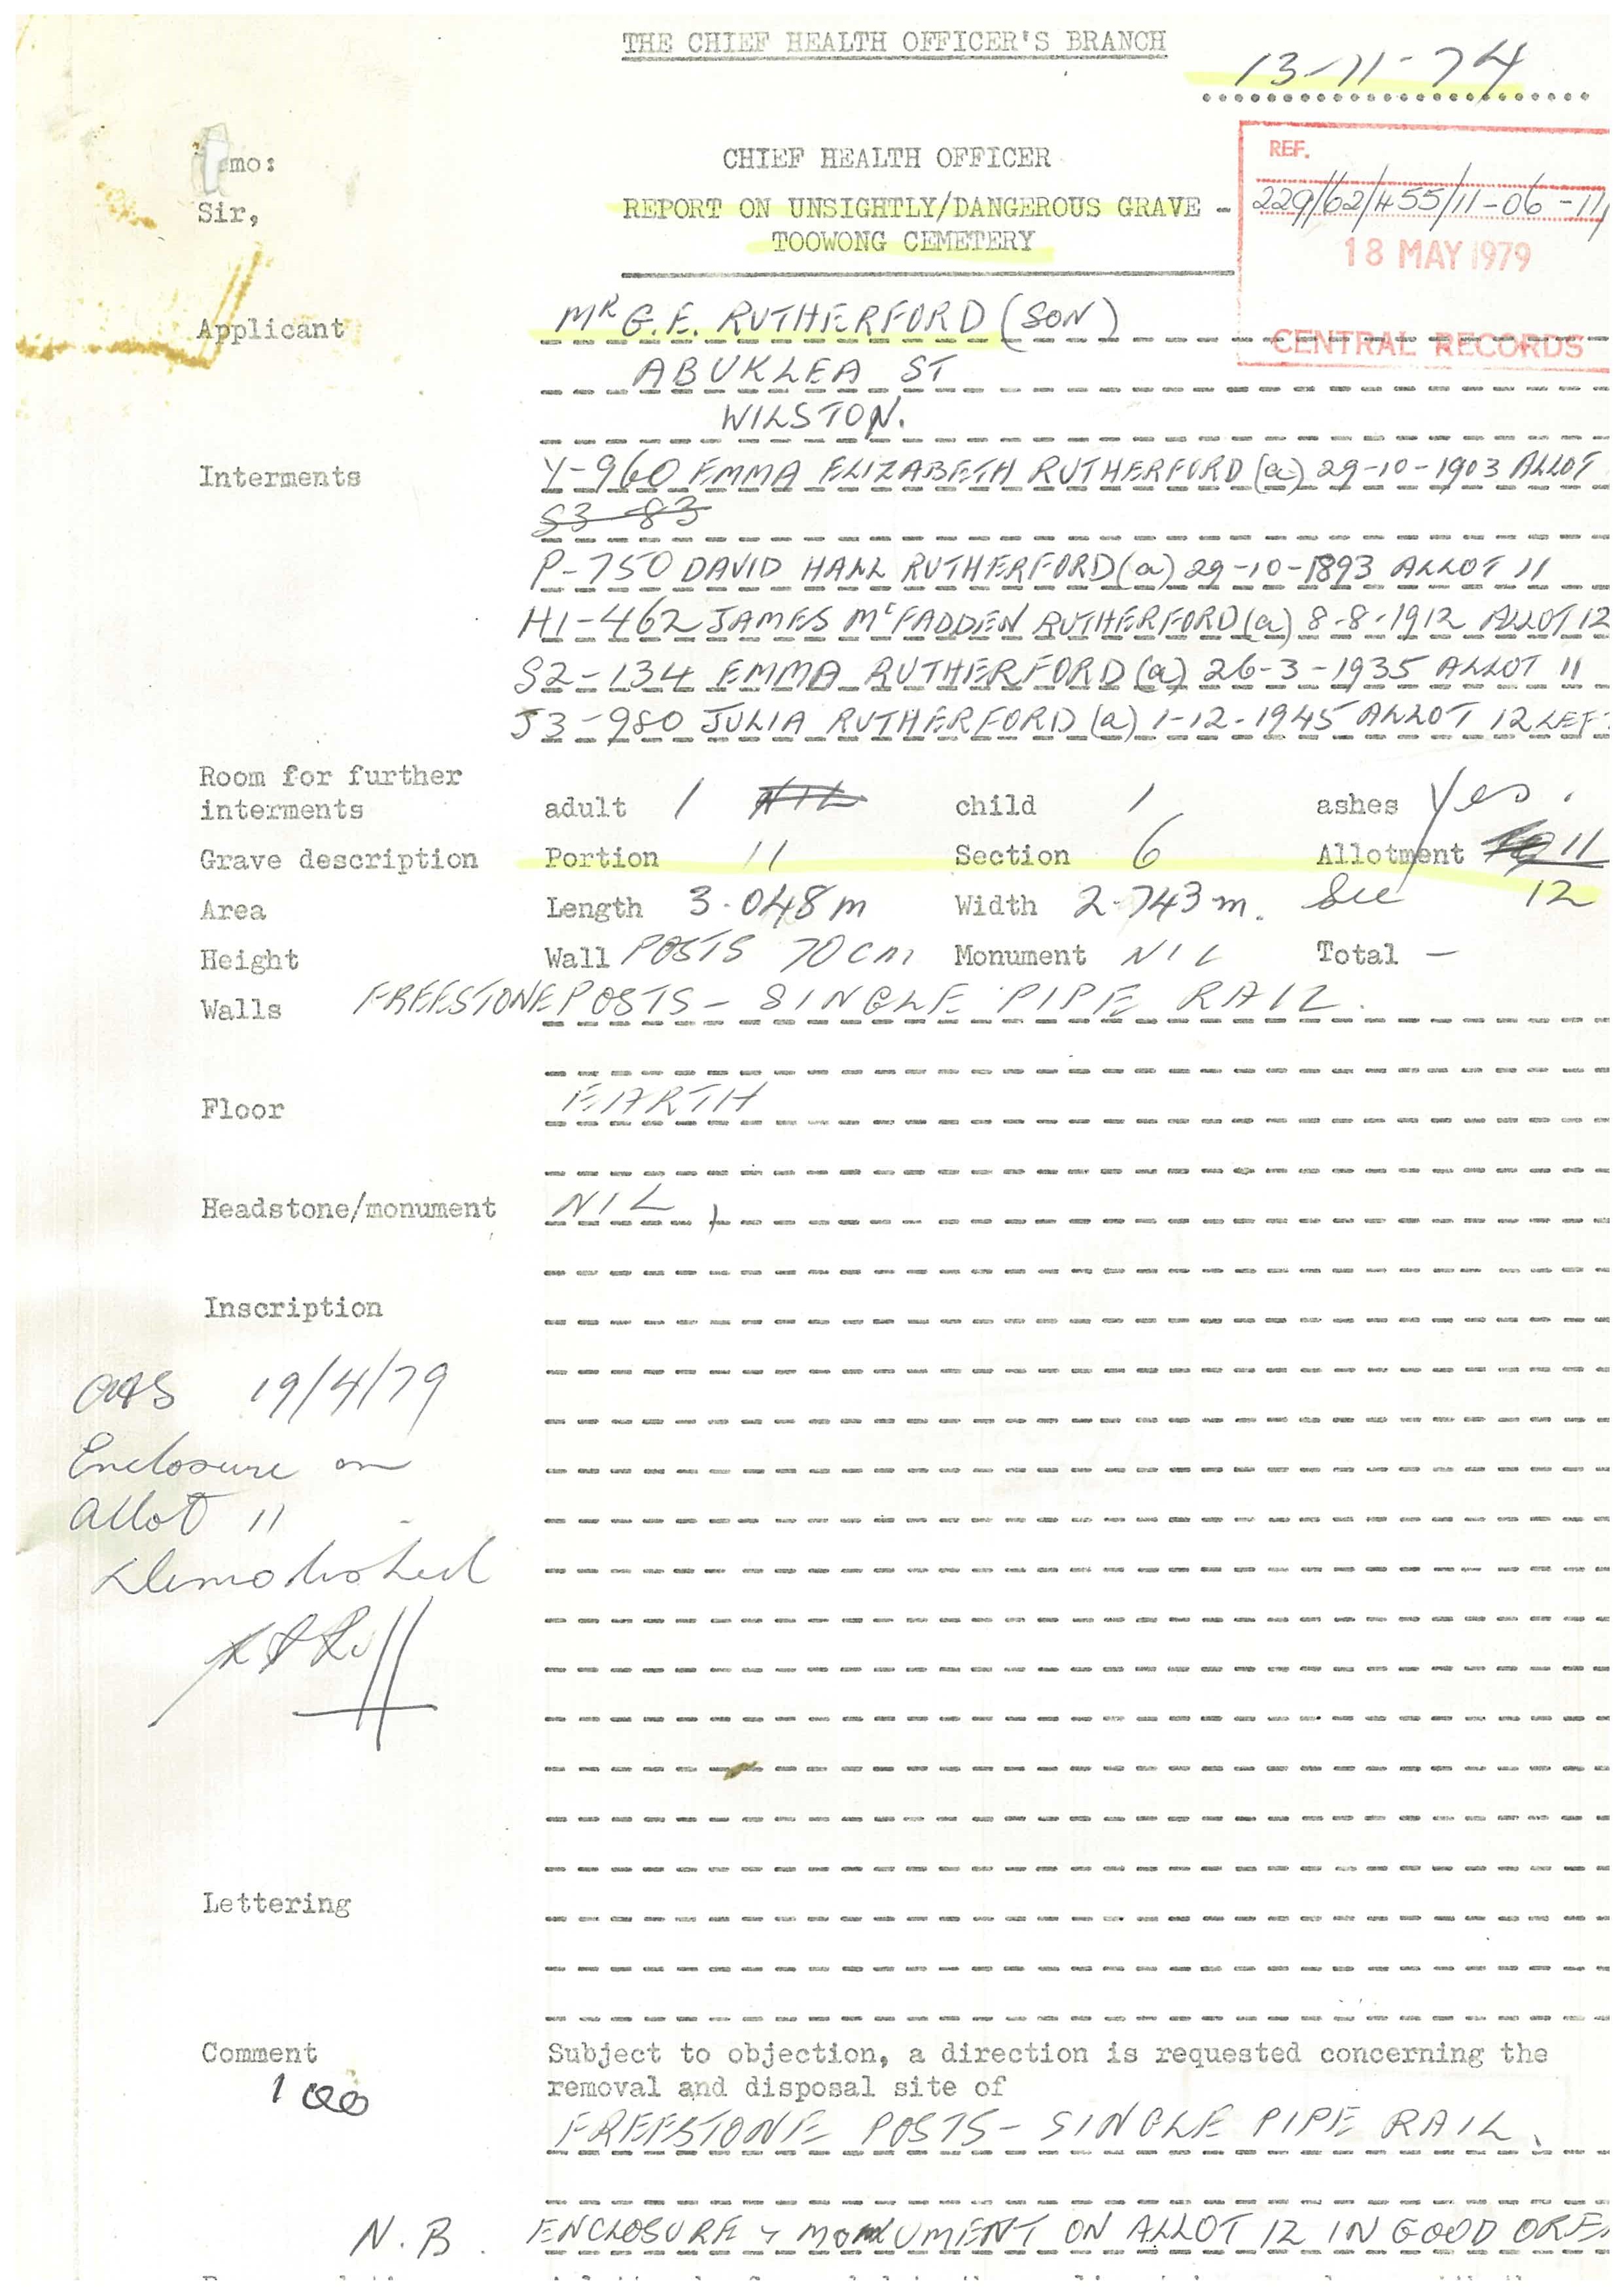 THE CHIEF HEALTH OFFICER'S BRANCH
13-11-74
mo:
CHIEF HEALTH OFFICER
REF.
Sir,
REPORT ON UNSIGHTLY/DANGEROUS GRAVE -
229/62/455/11-06-11/
TOOWONG CEMETERY
18 MAY 1979
CENTRAL RECORDS
Applicant MR G.E. RUTHERFORD (SON)
ABUKLEA ST
WILSTON.
Interments Y-960 EMMA ELIZABETH RUTHERFORD (a) 29-10-1903 ALLOT
S3-83
P-750 DAVID HALL RUTHERFORD (a) 29-10-1893 ALLOT 11
H1-462 JAMES McFADDEN RUTHERFORD (a) 8-8-1912 ALLOT 12
S2-134 EMMA RUTHERFORD (a) 26-3-1935 ALLOT 11
J3-980 JULIA RUTHERFORD (a) 1-12-1945 ALLOT 12 LEFT
Room for further
interments adult 1 NIL child 1 ashes Yes.
Grave description Portion 11 Section 6 Allotment 11
Area Length 3.048m Width 2.743m. See 12
Height Wall POSTS 70cm Monument NIL Total -
Walls FREESTONE POSTS - SINGLE PIPE RAIL.
Floor EARTH
Headstone/monument NIL,
Inscription
19/4/79
Enclosure on
Allot 11
Demolished
Lettering
Comment Subject to objection, a direction is requested concerning the
removal and disposal site of
100
FREESTONE POSTS - SINGLE PIPE RAIL.
N.B. ENCLOSURE & MONUMENT ON ALLOT 12 IN GOOD ORE